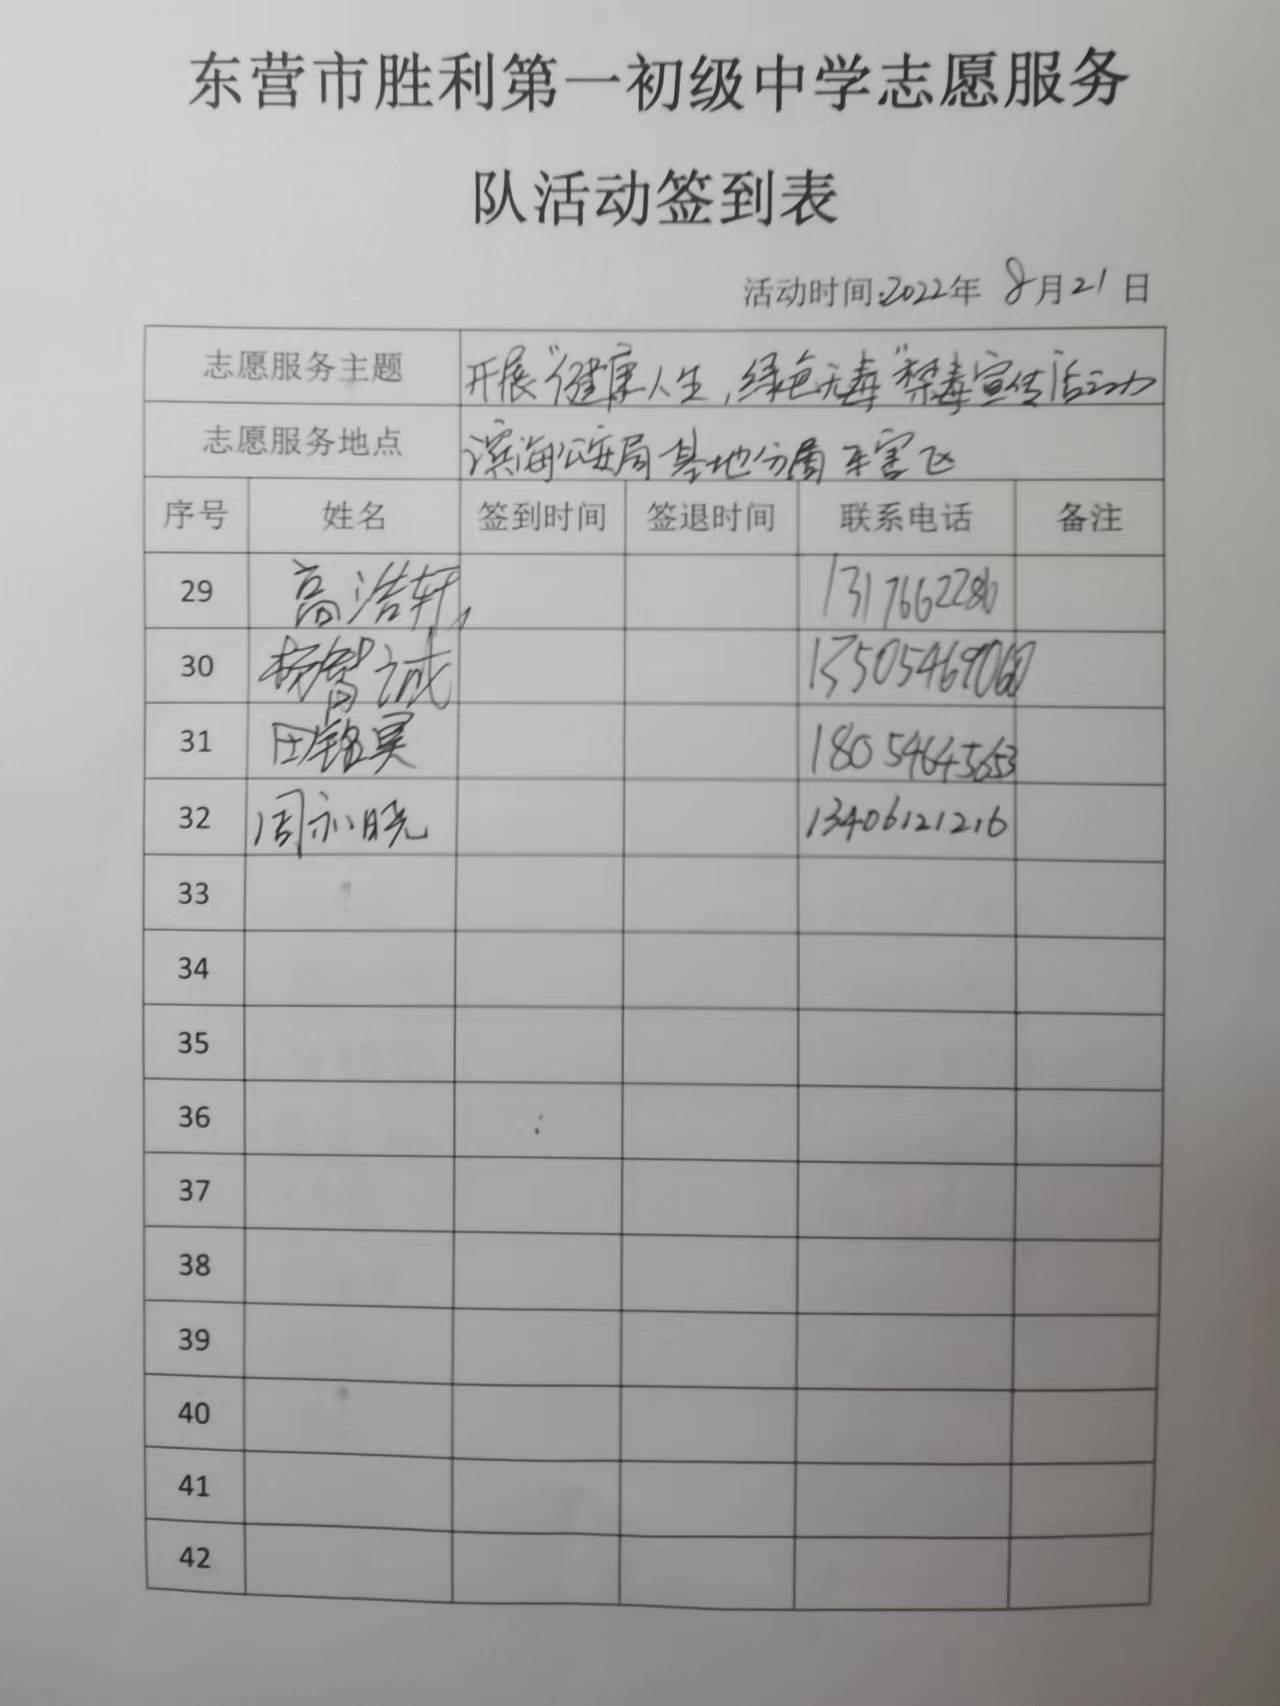 东营市胜利第一初级中学志愿服务
队活动签到表
活动时间:2022年 8月21日
志愿服务主题 开展“健康人生,绿色无毒”禁毒宣传活动
志愿服务地点 滨海公安局基地分局
序号 姓名 签到时间 签退时间 联系电话 备注
29 高浩轩
30 杨智诚
31 田铭昊 18054645653
32 周永晓 13406121216
33
34
35
36
37
38
39
40
41
42